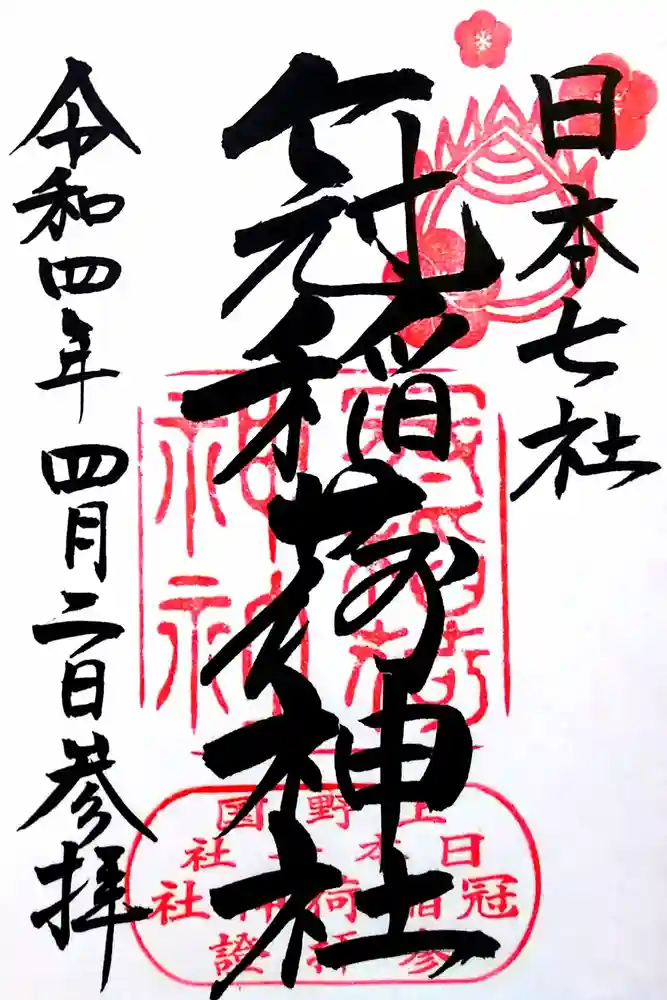 日本七社
冠稲荷神社
令和四年四月二日参拝
上野国
日本七社
冠稲荷神社
参拝證